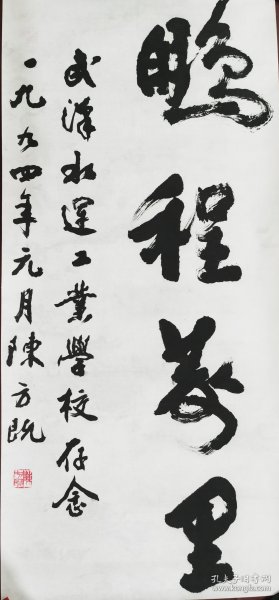 鹏程万里
武漢水運工業學校存念
一九九四年元月陳方既
孔夫子旧书网